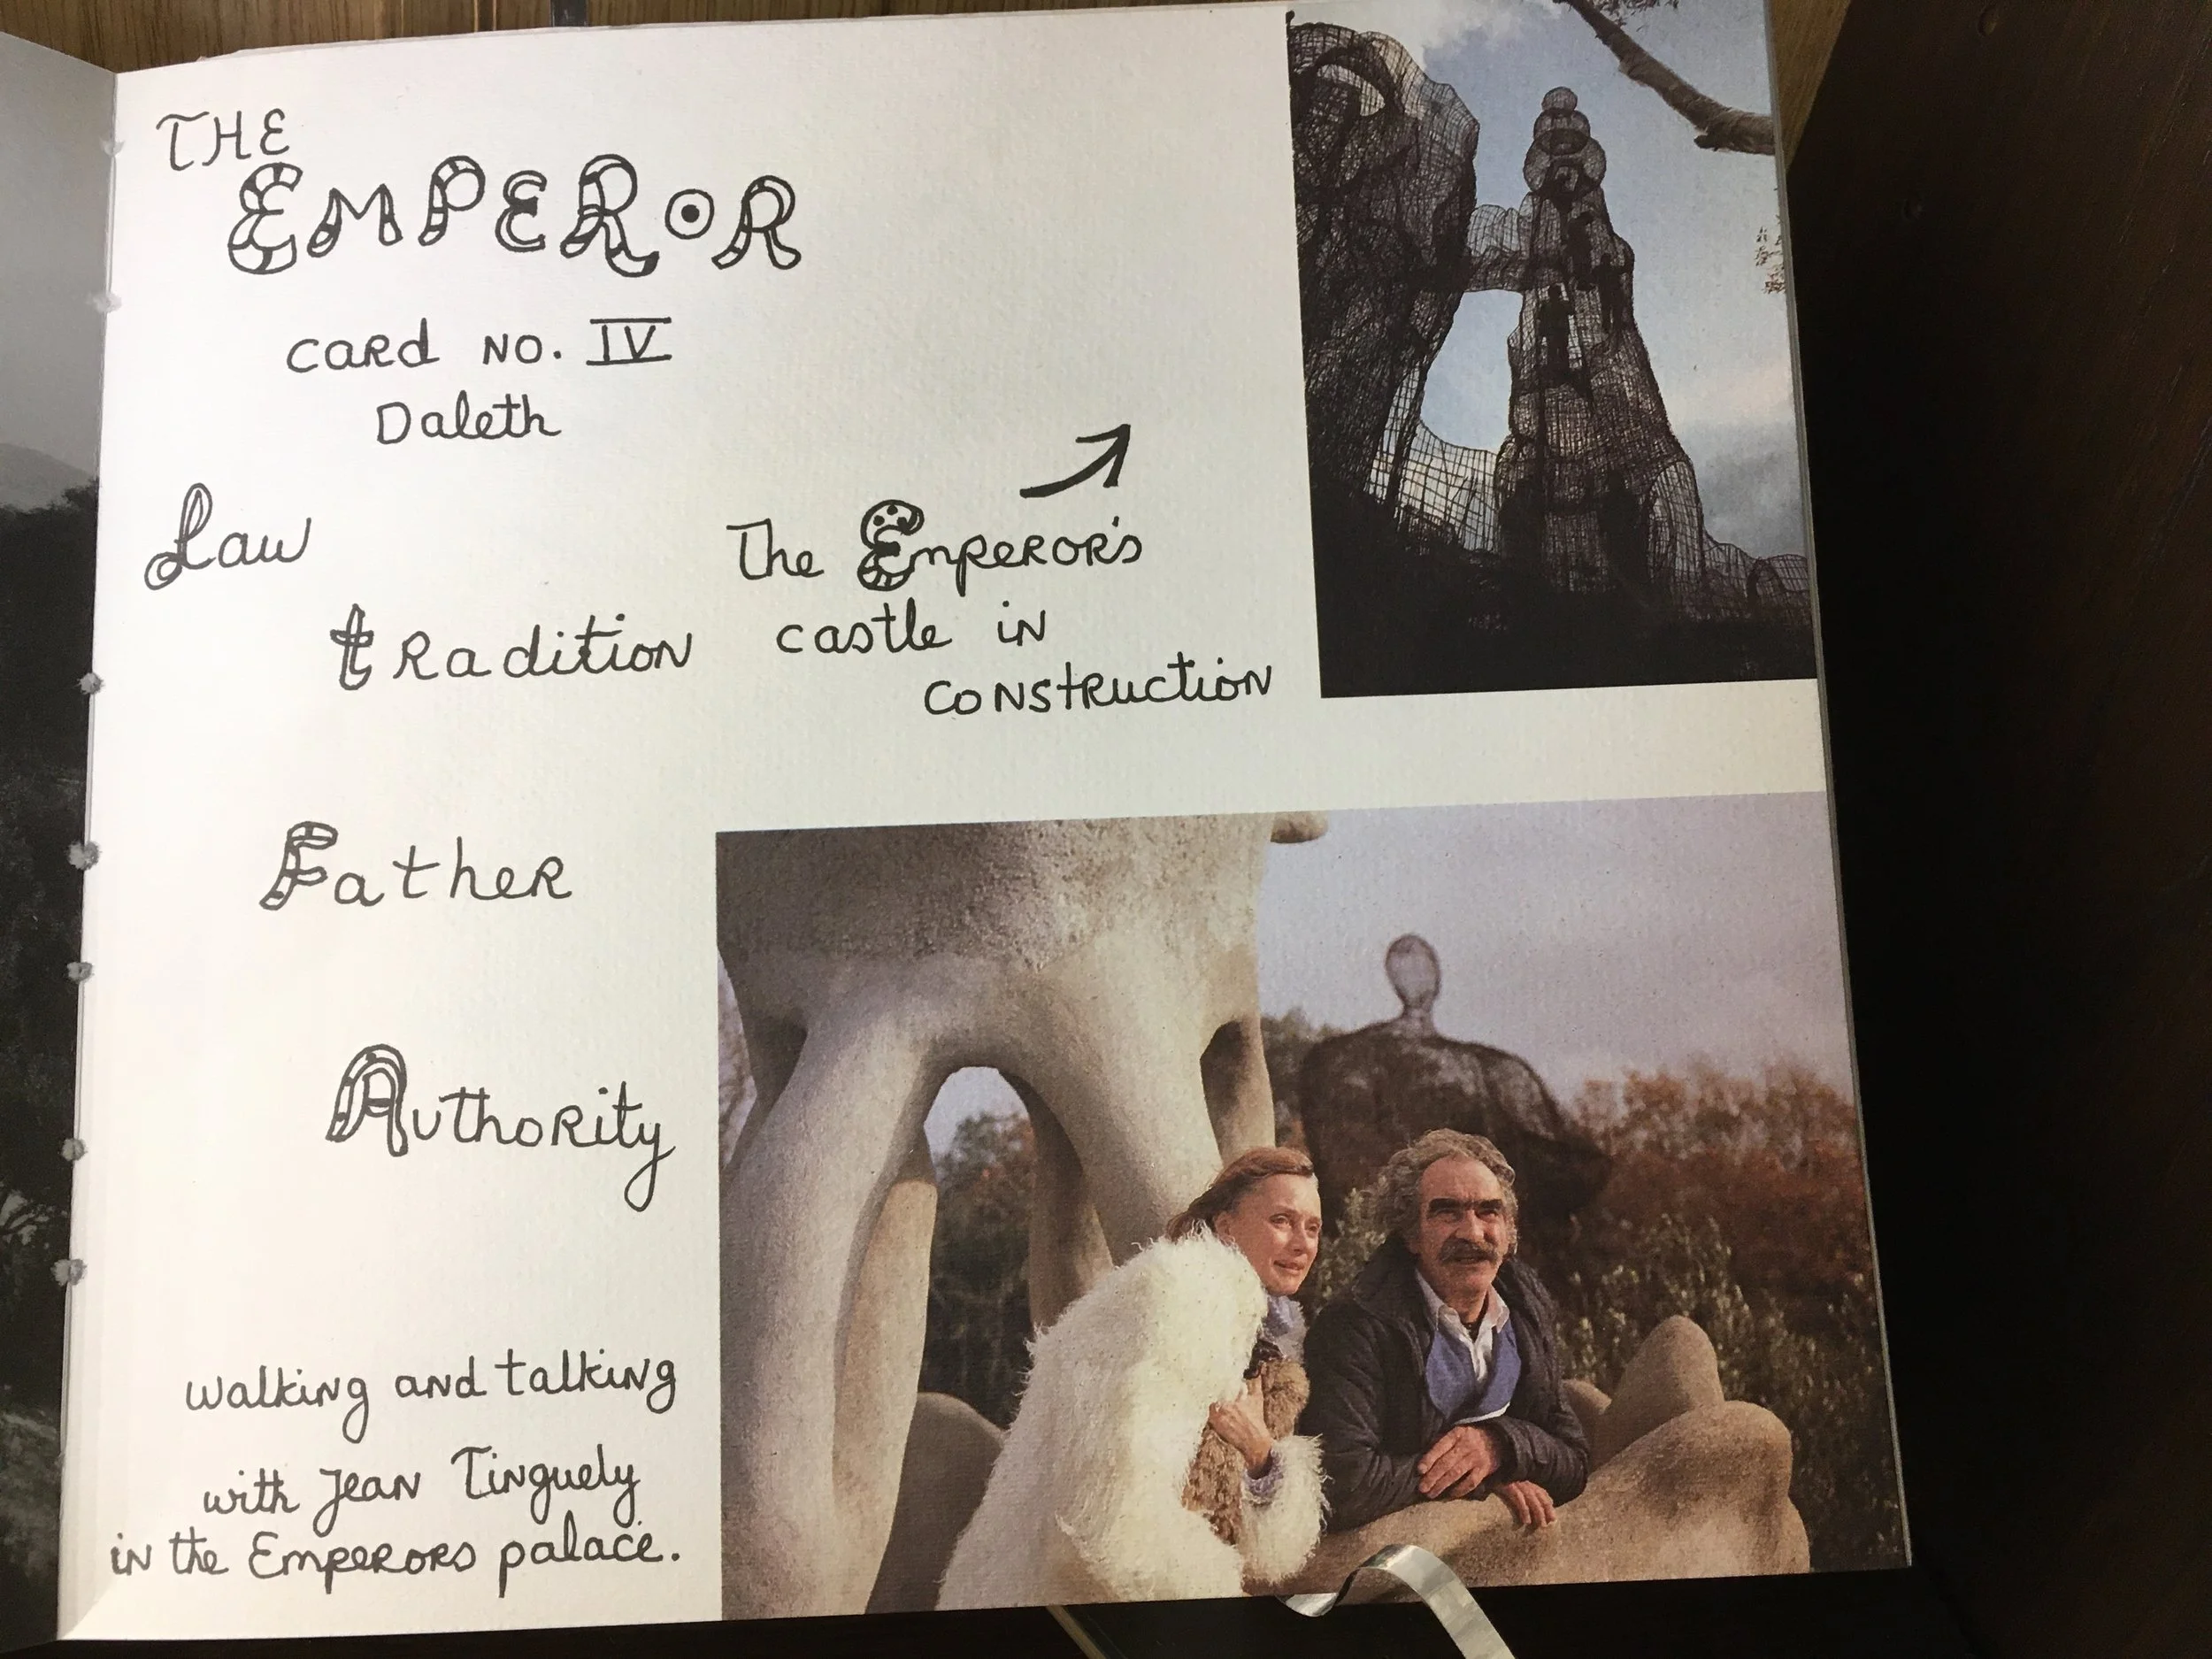 THE
EMPEROR
card no. IV
Daleth
Law
tradition
The Emperor's
castle in
construction
Father
Authority
walking and talking
with Jean Tinguely
in the Emperors palace.